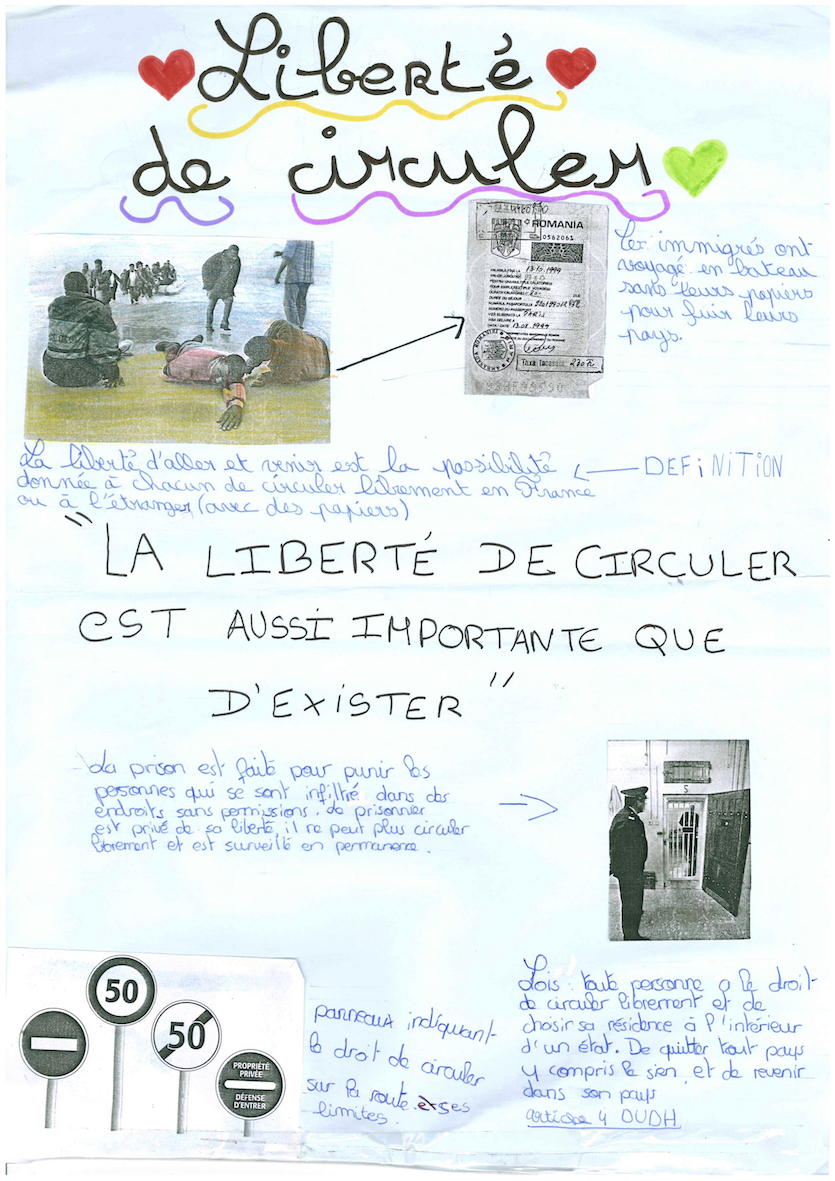 Liberté
de circuler
ROMANIA
0562061
Les immigrés ont
voyagé en bateau
sans leurs papiers
pour fuir leurs
pays.
La liberté d'aller et venir est la possibilité
donnée à chacun de circuler librement en France
ou à l'étranger (avec des papiers)
DEFiNITION
"LA LIBERTÉ DE CIRCULER
EST AUSSI IMPORTANTE QUE
D'EXISTER"
La prison est faite pour punir les
personnes qui se sont infiltré dans des
endroits sans permissions. Le prisonnier
est privé de sa liberté, il ne peut plus circuler
librement et est surveillé en permanence.
5
50
50
PROPRIÉTÉ
PRIVÉE
DÉFENSE
D'ENTRER
panneaux indiquant
le droit de circuler
sur la route. et ses
limites.
Lois : toute personne a le droit
de circuler librement et de
choisir sa résidence à l'intérieur
d'un état. De quitter tout pays
y compris le sien, et de revenir
dans son pays
article 4 DUDH